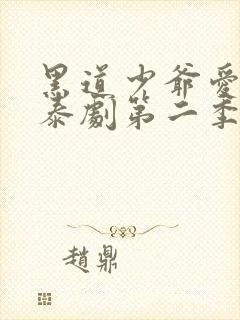 黑道少爺愛
泰劇第二季
趙鼎